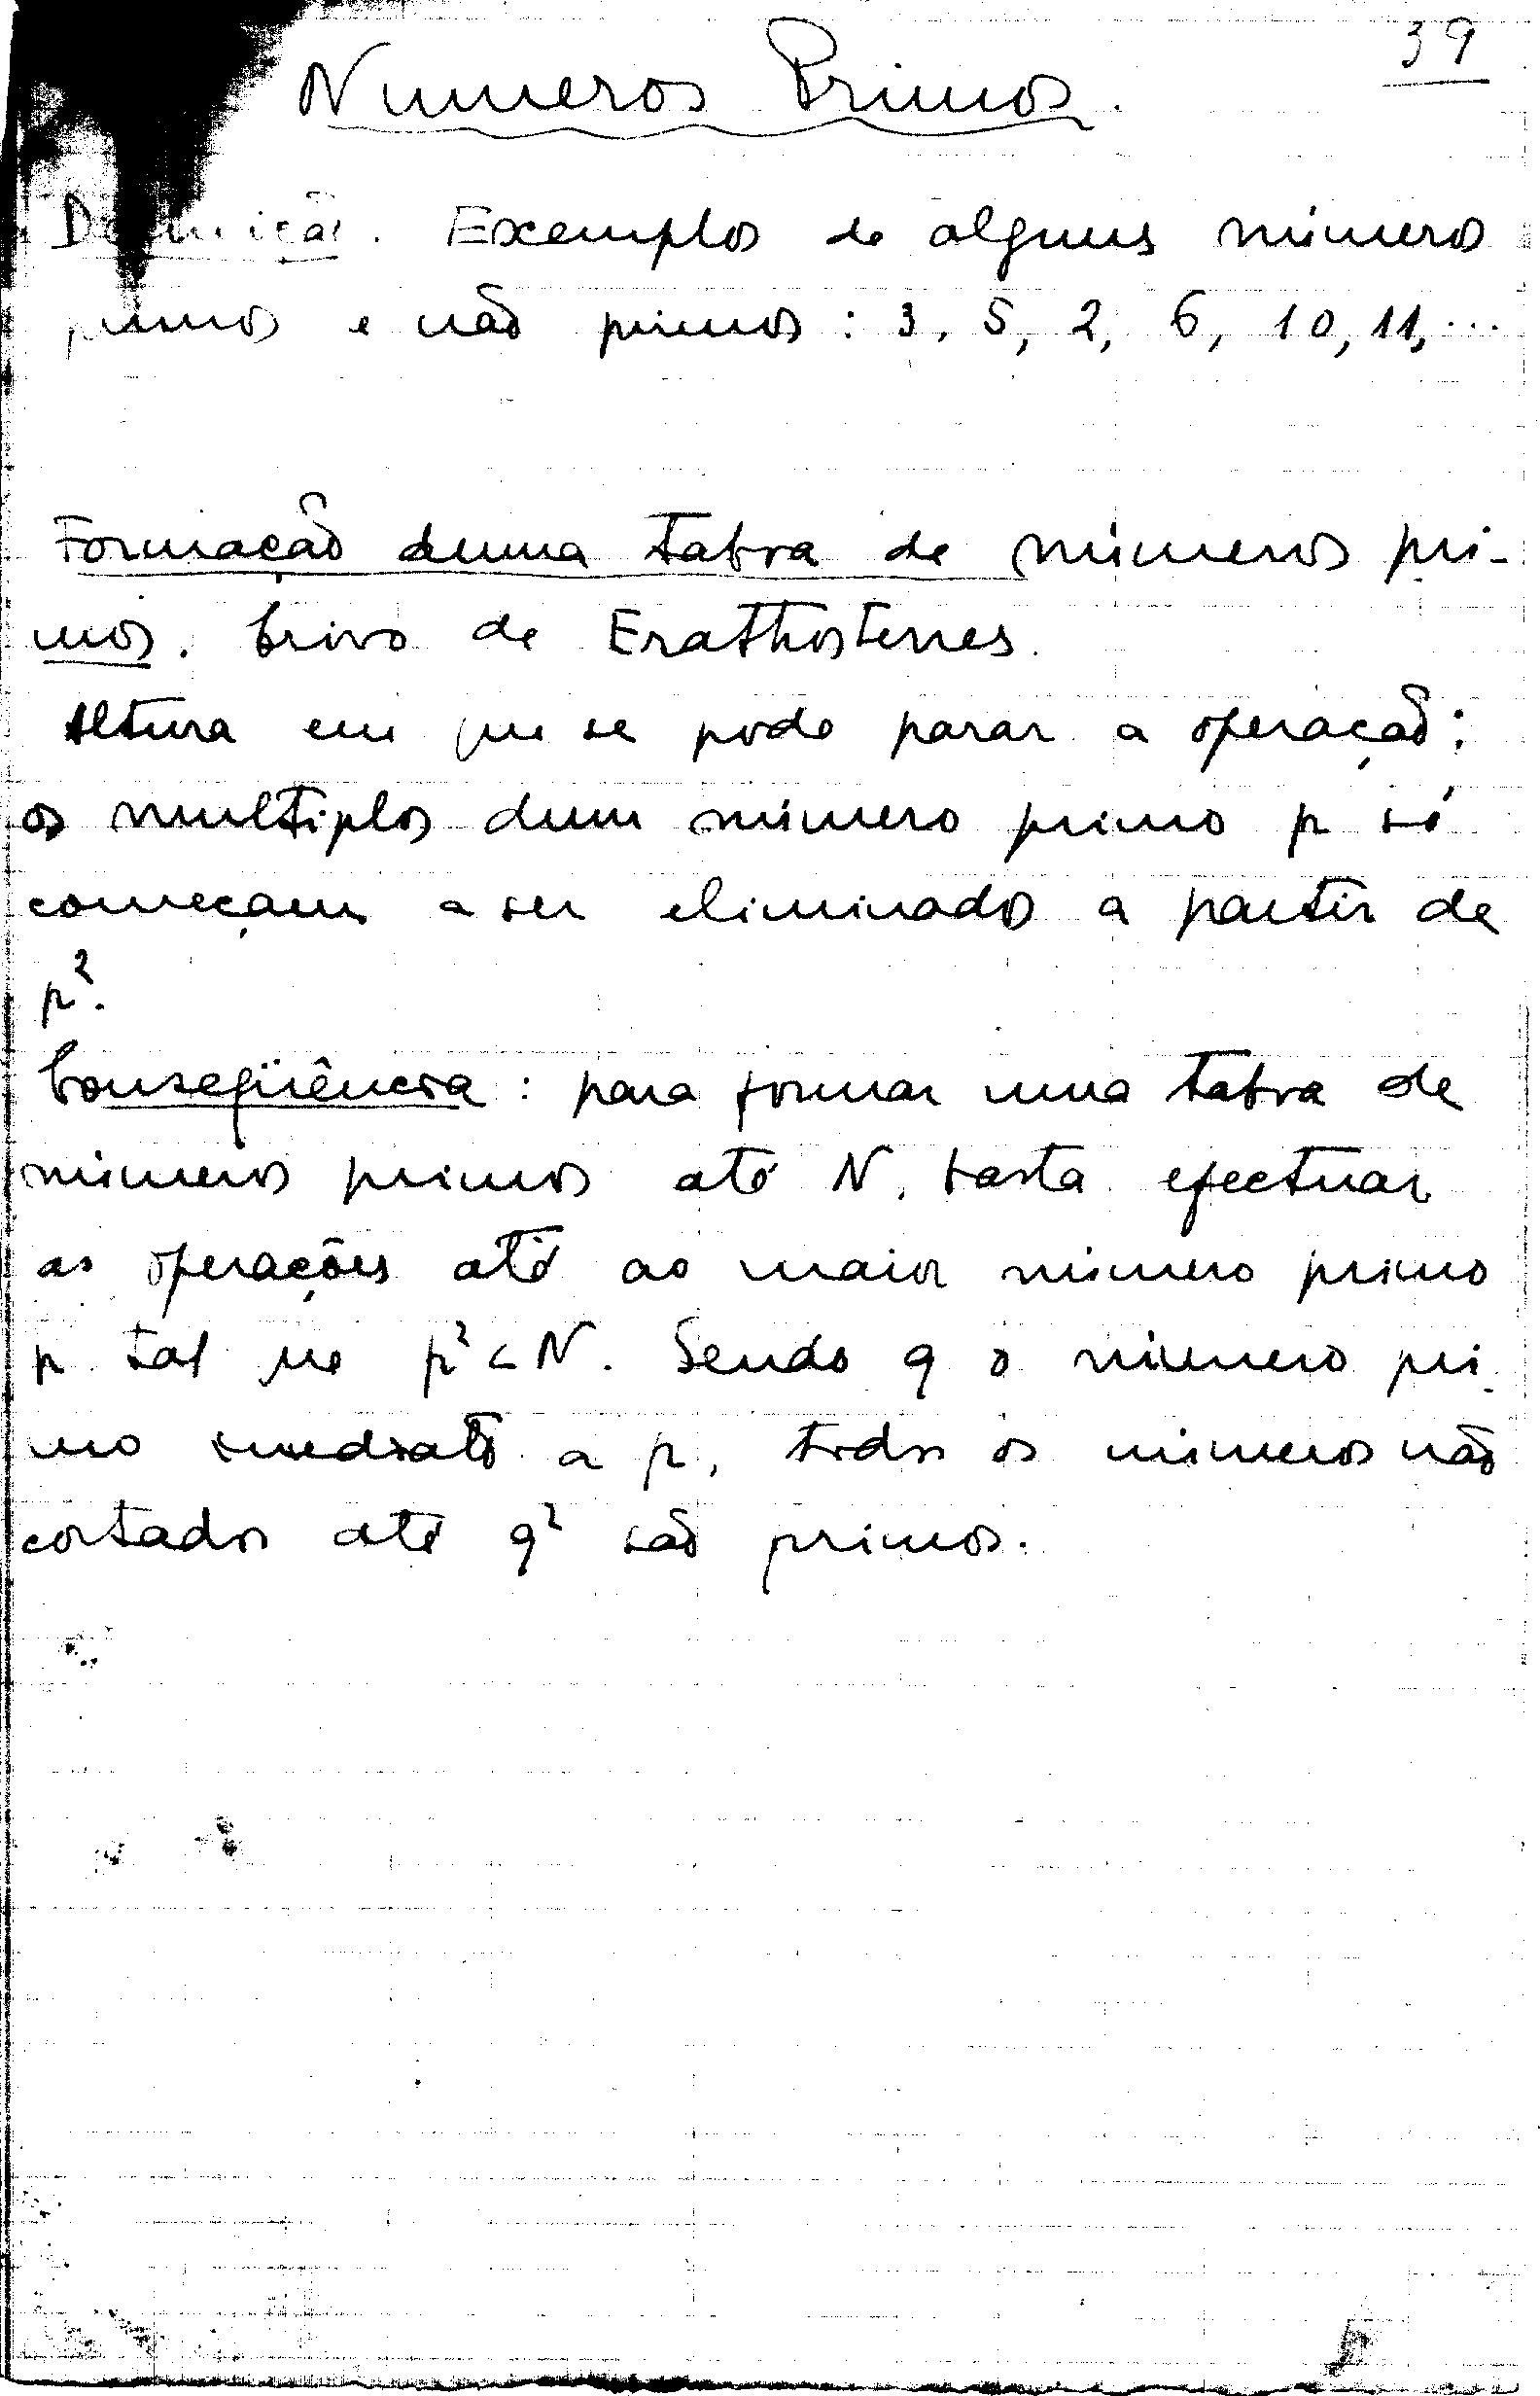 39
Numeros Primos.
Definição. Exemplos de alguns números
primos e não primos: 3, 5, 2, 6, 10, 11, ...
Formação duma tabua de números pri-
mos. Crivo de Erathostenes.
Altura em que se pode parar a operação:
os multiplos dum número primo p só
começam a ser eliminados a partir de
p².
Conseqüência: para formar uma tabua de
números primos até N, basta efectuar
as operações até ao maior número primo
p tal que p² < N. Sendo q o número pri
mo imediato a p, todos os números não
cortados até q² são primos.